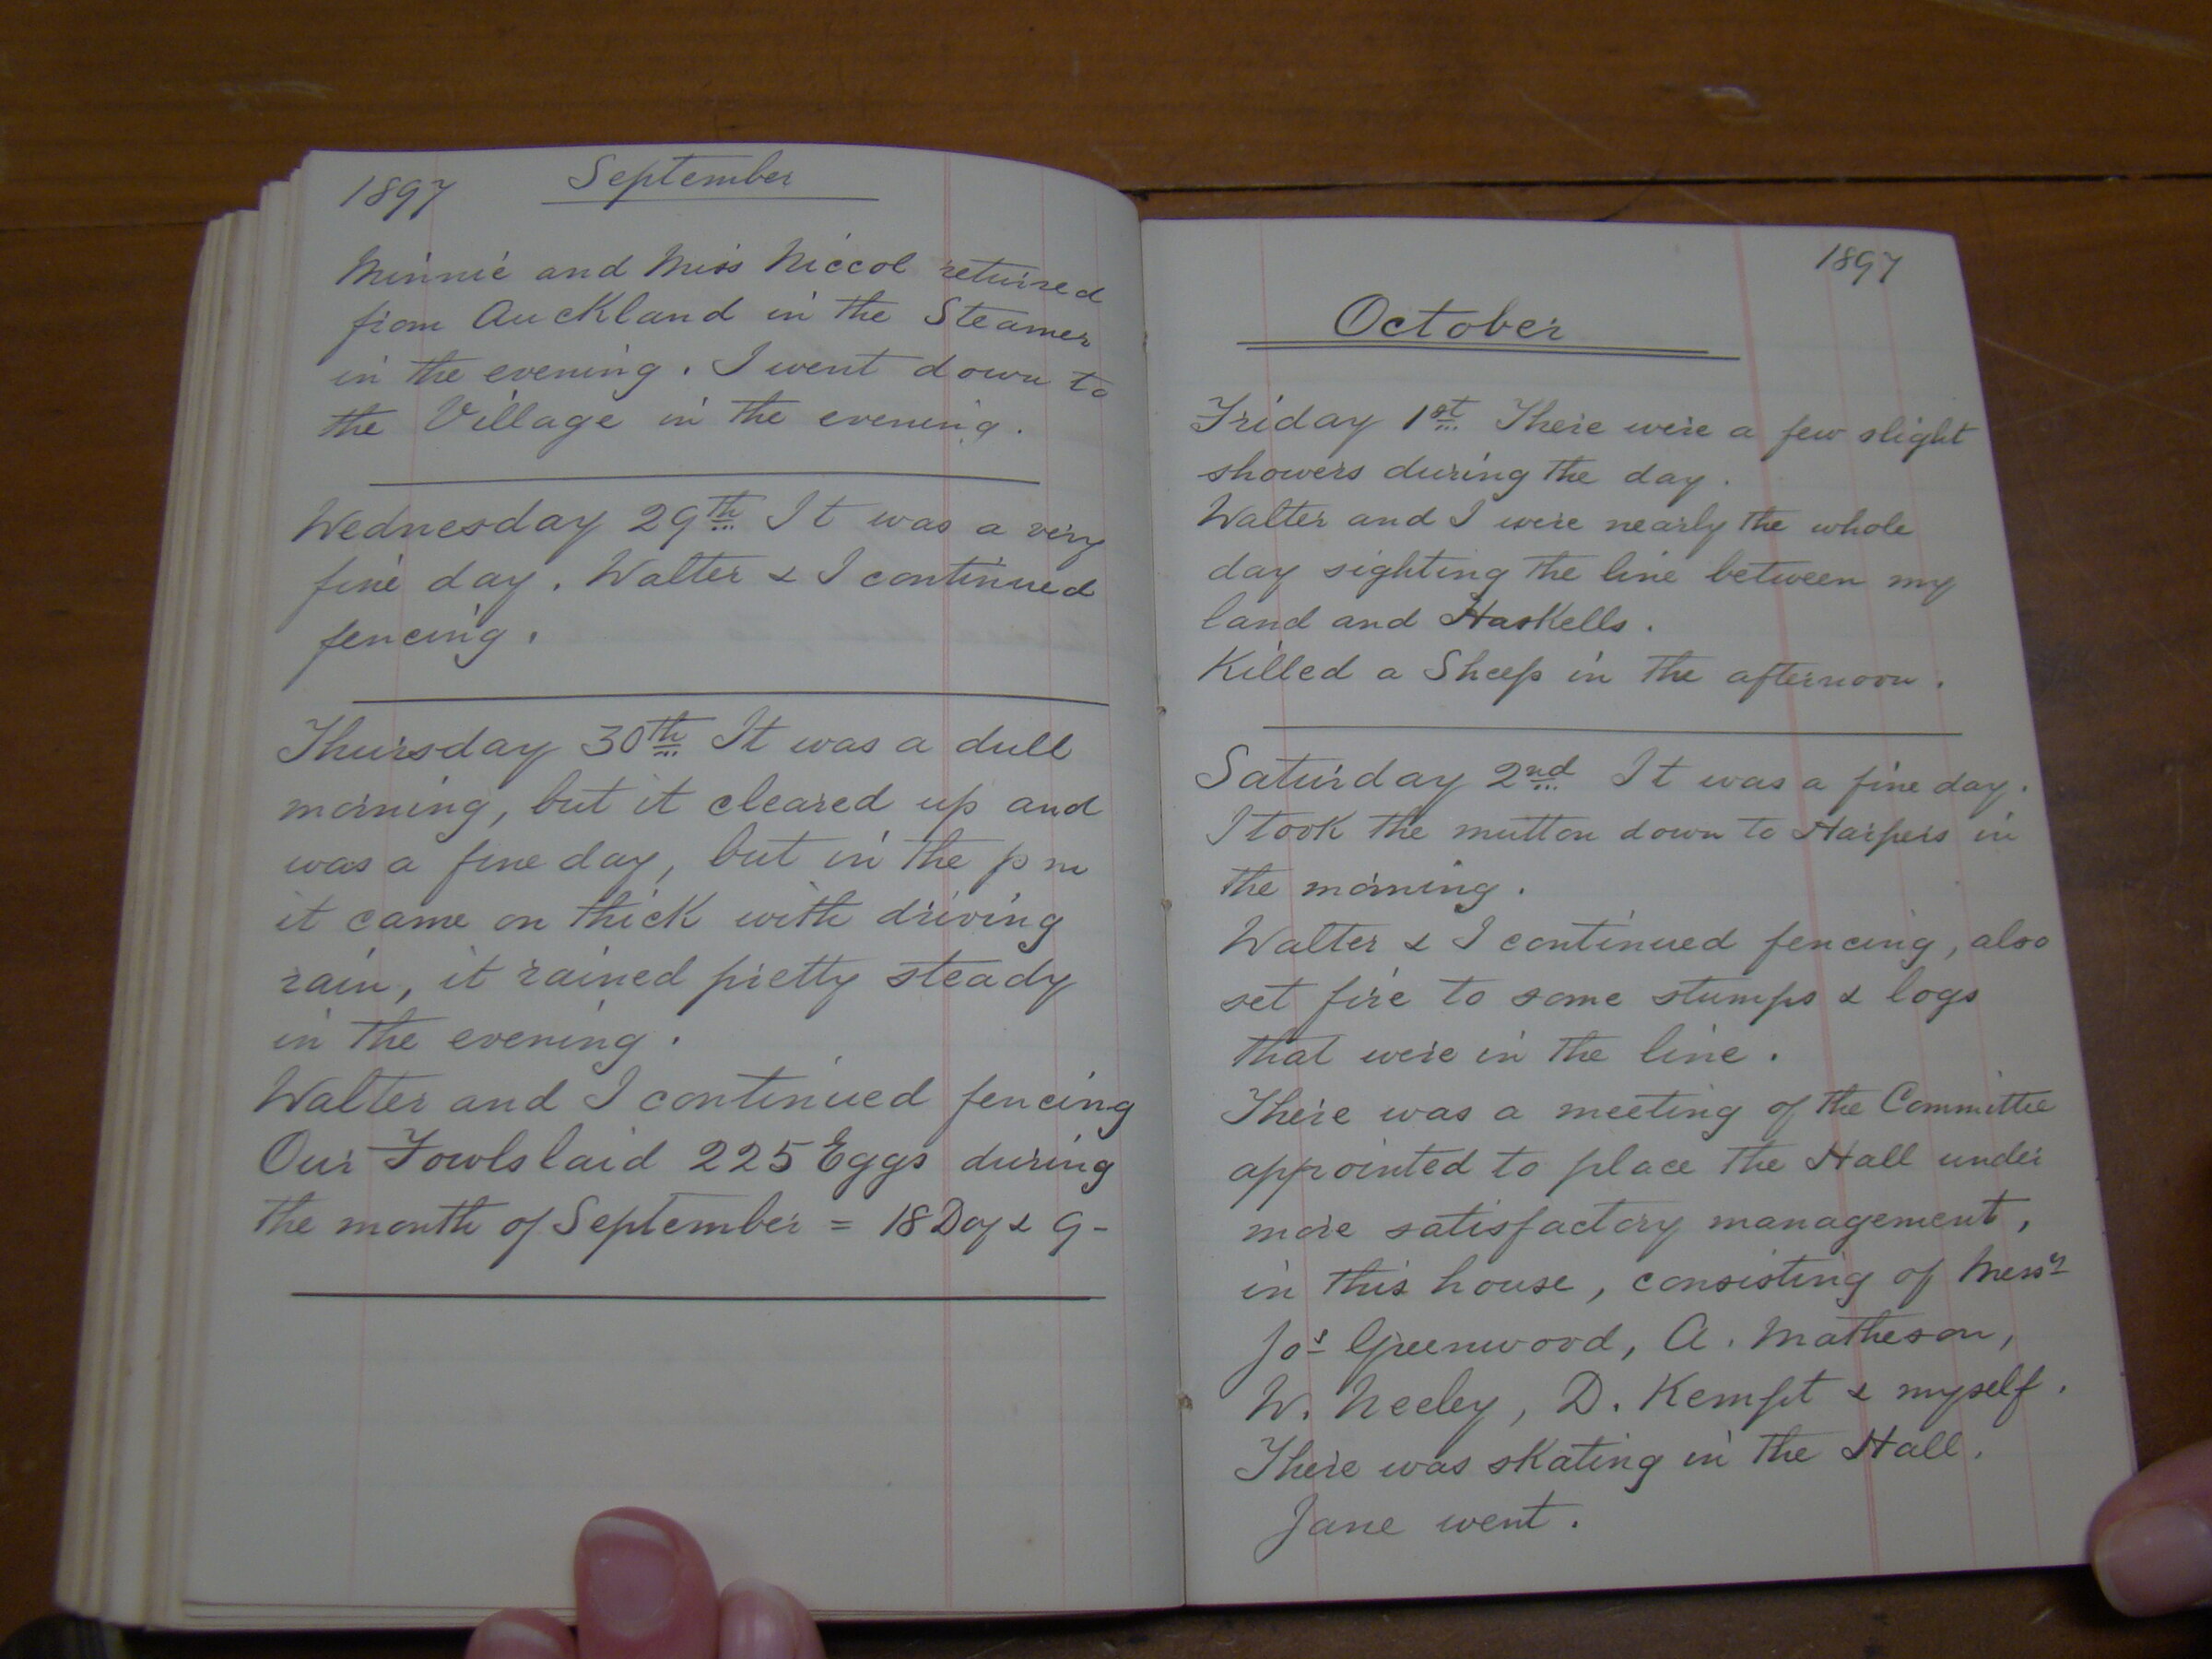 1897 September
Minnie and Miss Niccol returned
from Auckland in the Steamer
in the evening. I went down to
the Village in the evening.
Wednesday 29th It was a very
fine day. Walter & I continued
fencing.
Thursday 30th It was a dull
morning, but it cleared up and
was a fine day, but in the p m
it came on thick with driving
rain, it rained pretty steady
in the evening.
Walter and I continued fencing
Our Fowls laid 225 Eggs during
the month of September = 18 Doz & 9-
1897
October
Friday 1st There were a few slight
showers during the day.
Walter and I were nearly the whole
day sighting the line between my
land and Haskells.
Killed a Sheep in the afternoon.
Saturday 2nd It was a fine day.
I took the mutton down to Harpers in
the morning.
Walter & I continued fencing, also
set fire to some stumps & logs
that were in the line.
There was a meeting of the Committee
appointed to place the Hall under
more satisfactory management,
in this house, consisting of Messrs
Jos Greenwood, A. Matheson,
W. Neeley, D. Kempt & myself.
There was skating in the Hall.
Jane went.